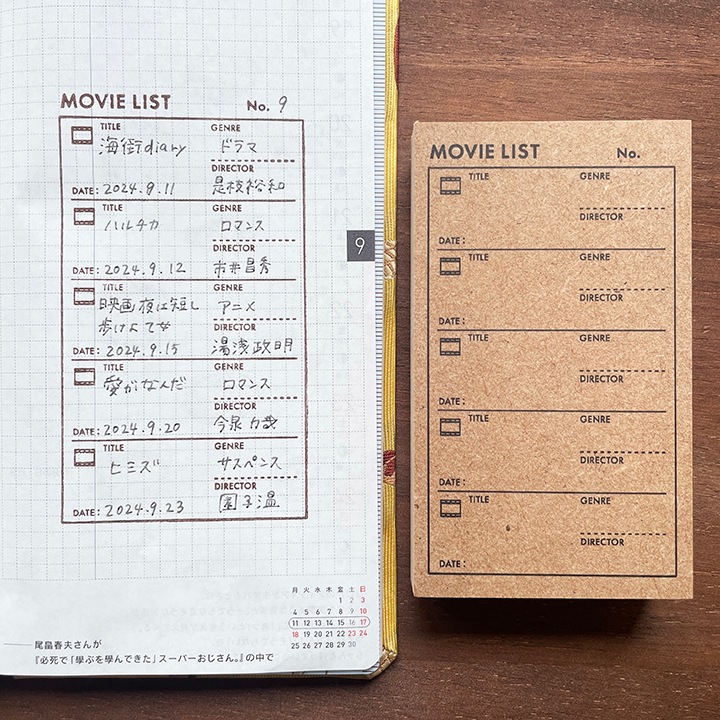 MOVIE LIST No. 9
TITLE GENRE
海街diary ドラマ
DIRECTOR
DATE: 2024.9.11 是枝裕和
TITLE GENRE
ハルチカ ロマンス
DIRECTOR
DATE: 2024.9.12 市井昌秀
TITLE GENRE
映画 夜は短し アニメ
歩けよ乙女 DIRECTOR
DATE: 2024.9.15 湯浅政明
TITLE GENRE
愛がなんだ ロマンス
DIRECTOR
DATE: 2024.9.20 今泉力哉
TITLE GENRE
ヒミズ サスペンス
DIRECTOR
DATE: 2024.9.23 園子温
9
月 火 水 木 金 土 日
1 2 3
4 5 6 7 8 9 10
11 12 13 14 15 16 17
18 19 20 21 22 23 24
25 26 27 28 29 30
——尾畠春夫さんが
『必死で「學ぶを學んできた」スーパーおじさん。』の中で
MOVIE LIST No.
TITLE GENRE
DIRECTOR
DATE:
TITLE GENRE
DIRECTOR
DATE:
TITLE GENRE
DIRECTOR
DATE:
TITLE GENRE
DIRECTOR
DATE:
TITLE GENRE
DIRECTOR
DATE: